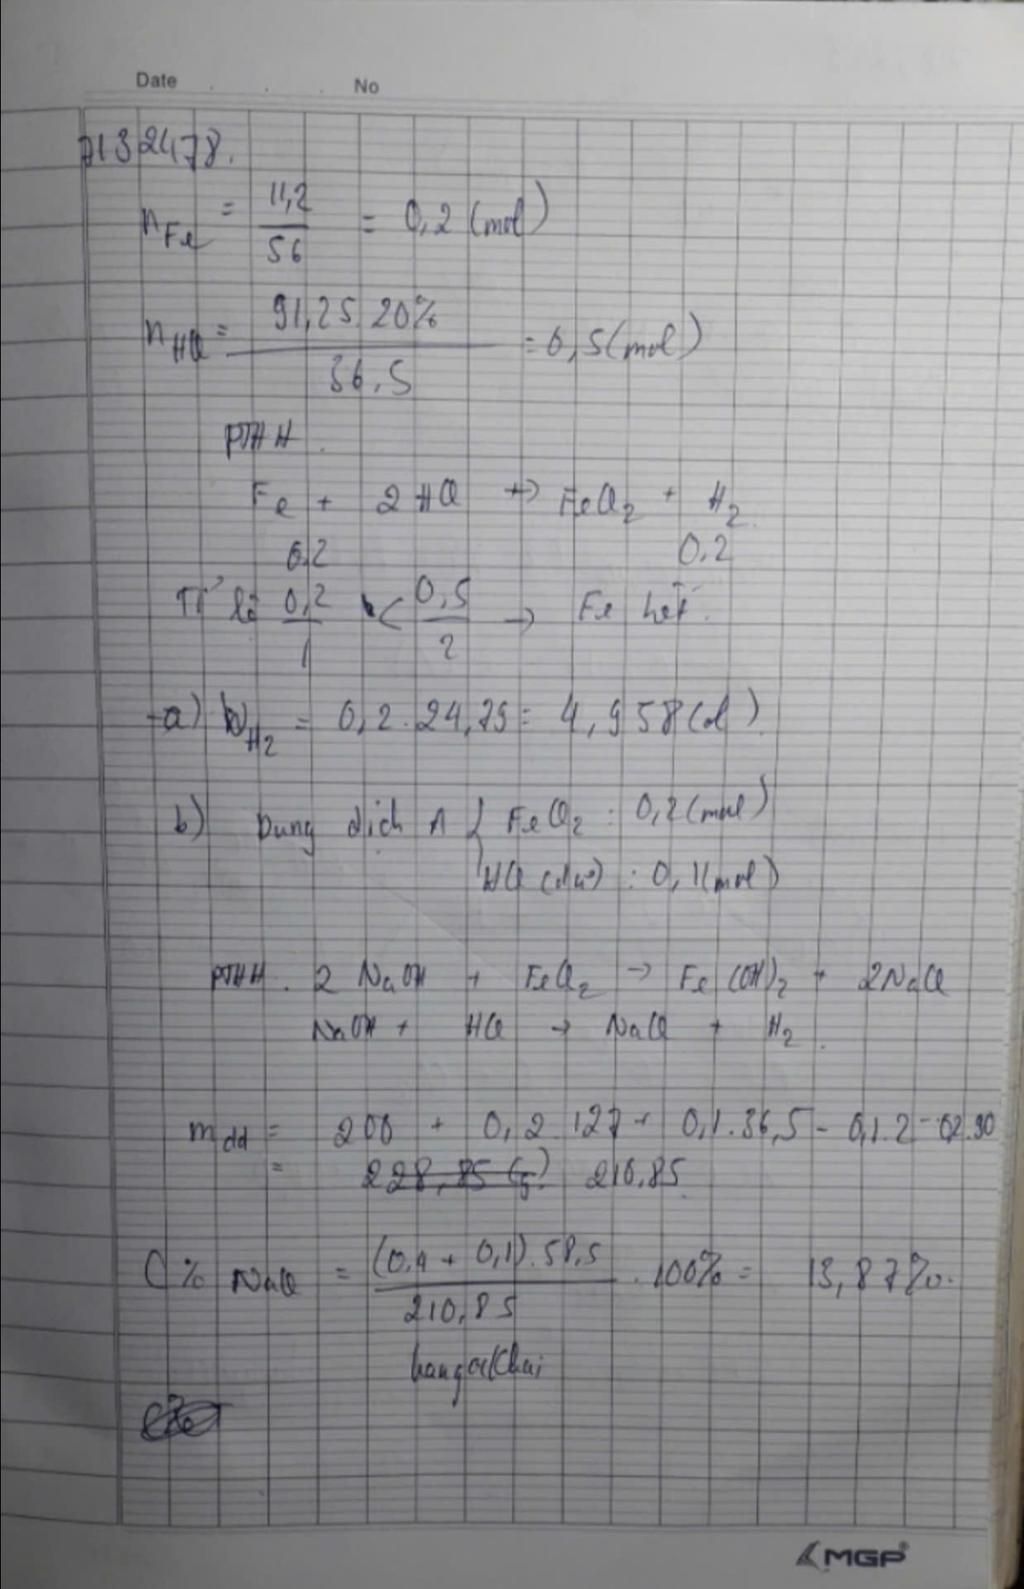 Date No
7132478.
nFe = 11,2 / 56 = 0,2 (mol)
nHCl = 91,25.20% / 36,5 = 0,5 (mol)
PTHH.
Fe + 2HCl → FeCl2 + H2
0,2 0,2
Tỉ lệ 0,2/1 < 0,5/2 → Fe hết.
a) VH2 = 0,2.24,79 = 4,958 (l).
b) Dung dịch A { FeCl2 : 0,2 (mol)
HCl (dư) : 0,1 (mol)
PTHH. 2NaOH + FeCl2 → Fe(OH)2 + 2NaCl
NaOH + HCl → NaCl + H2.
mdd = 200 + 0,2.127 + 0,1.36,5 - 0,1.2 - 0,2.90
= 228,85 (g) 210,85
C% NaCl = (0,4 + 0,1).58,5 / 210,85 . 100% = 13,87%.
MGP